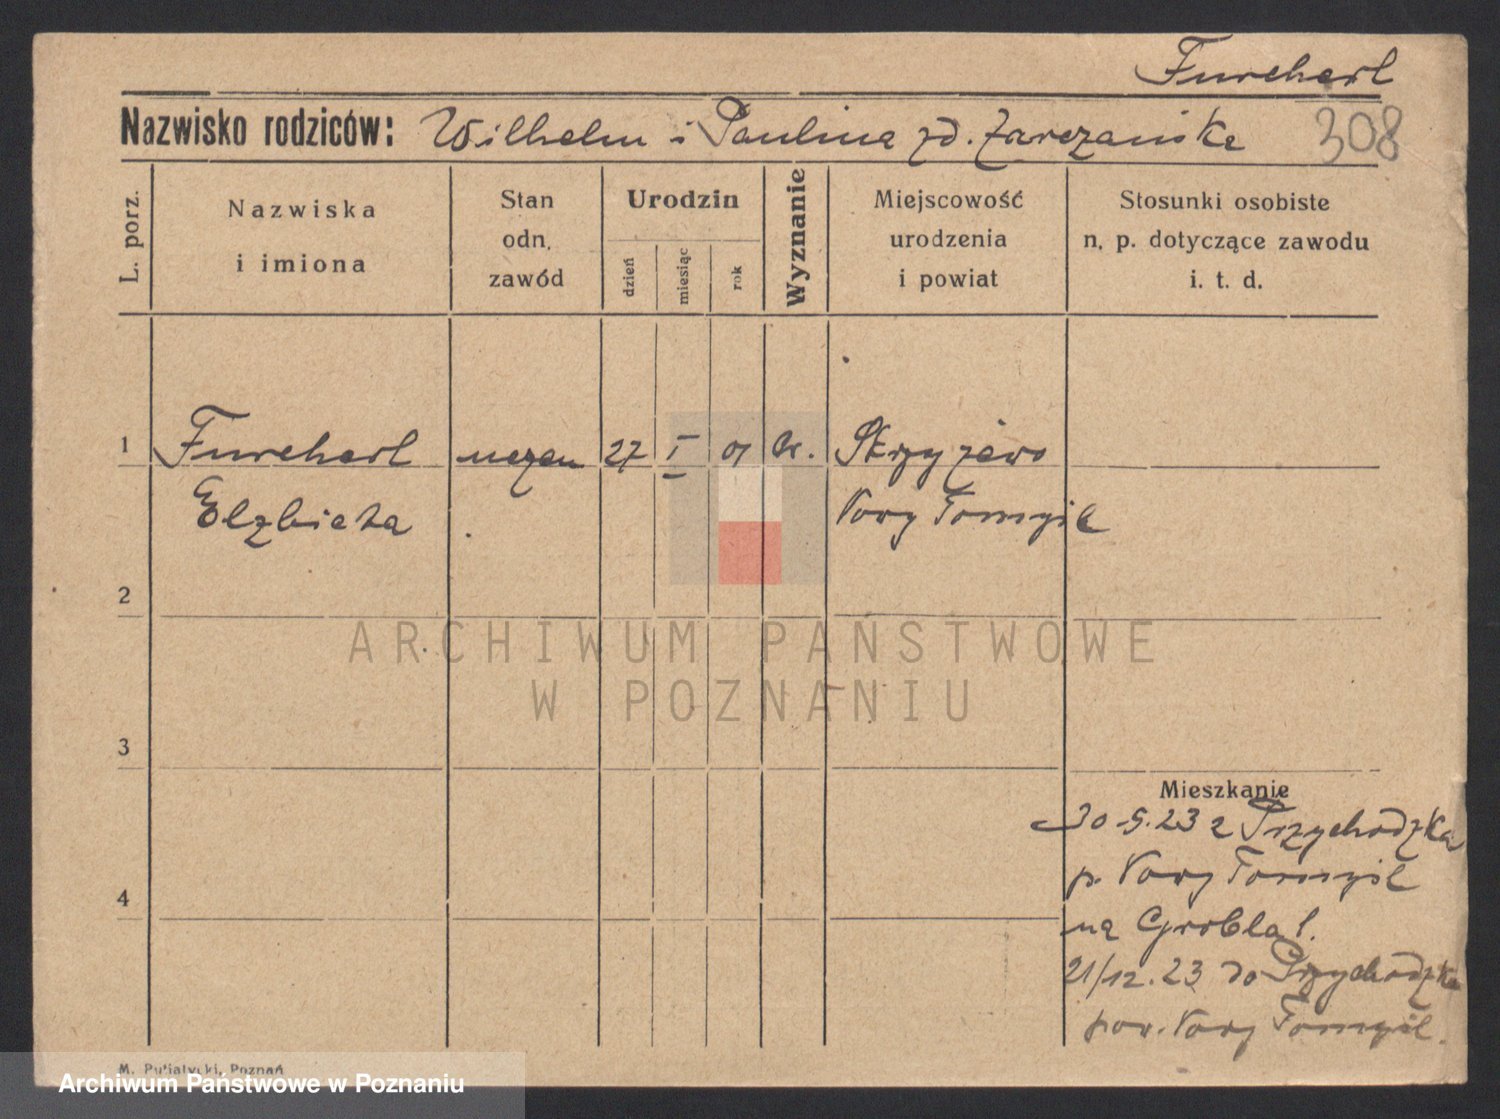 Furcherl
Nazwisko rodziców: Wilhelm i Paulina zd. Zarezańska 308
L. porz.
Nazwiska
i imiona
Stan
odn.
zawód
Urodzin
dzień
miesiąc
rok
Wyznanie
Miejscowość
urodzenia
i powiat
Stosunki osobiste
n. p. dotyczące zawodu
i. t. d.
1 Furcherl uczen 27 I 01
Elzbieta Nowy Tomyśl
2
ARCHIWUM PAŃSTWOWE
W POZNANIU
3
Mieszkanie
30.5.23 z Przychodzka
p. Nowy Tomyśl
4
na Grobla 1.
21/12.23 do Przychodzka
pow. Nowy Tomyśl.
M. Putiatycki, Poznań
Archiwum Państwowe w Poznaniu